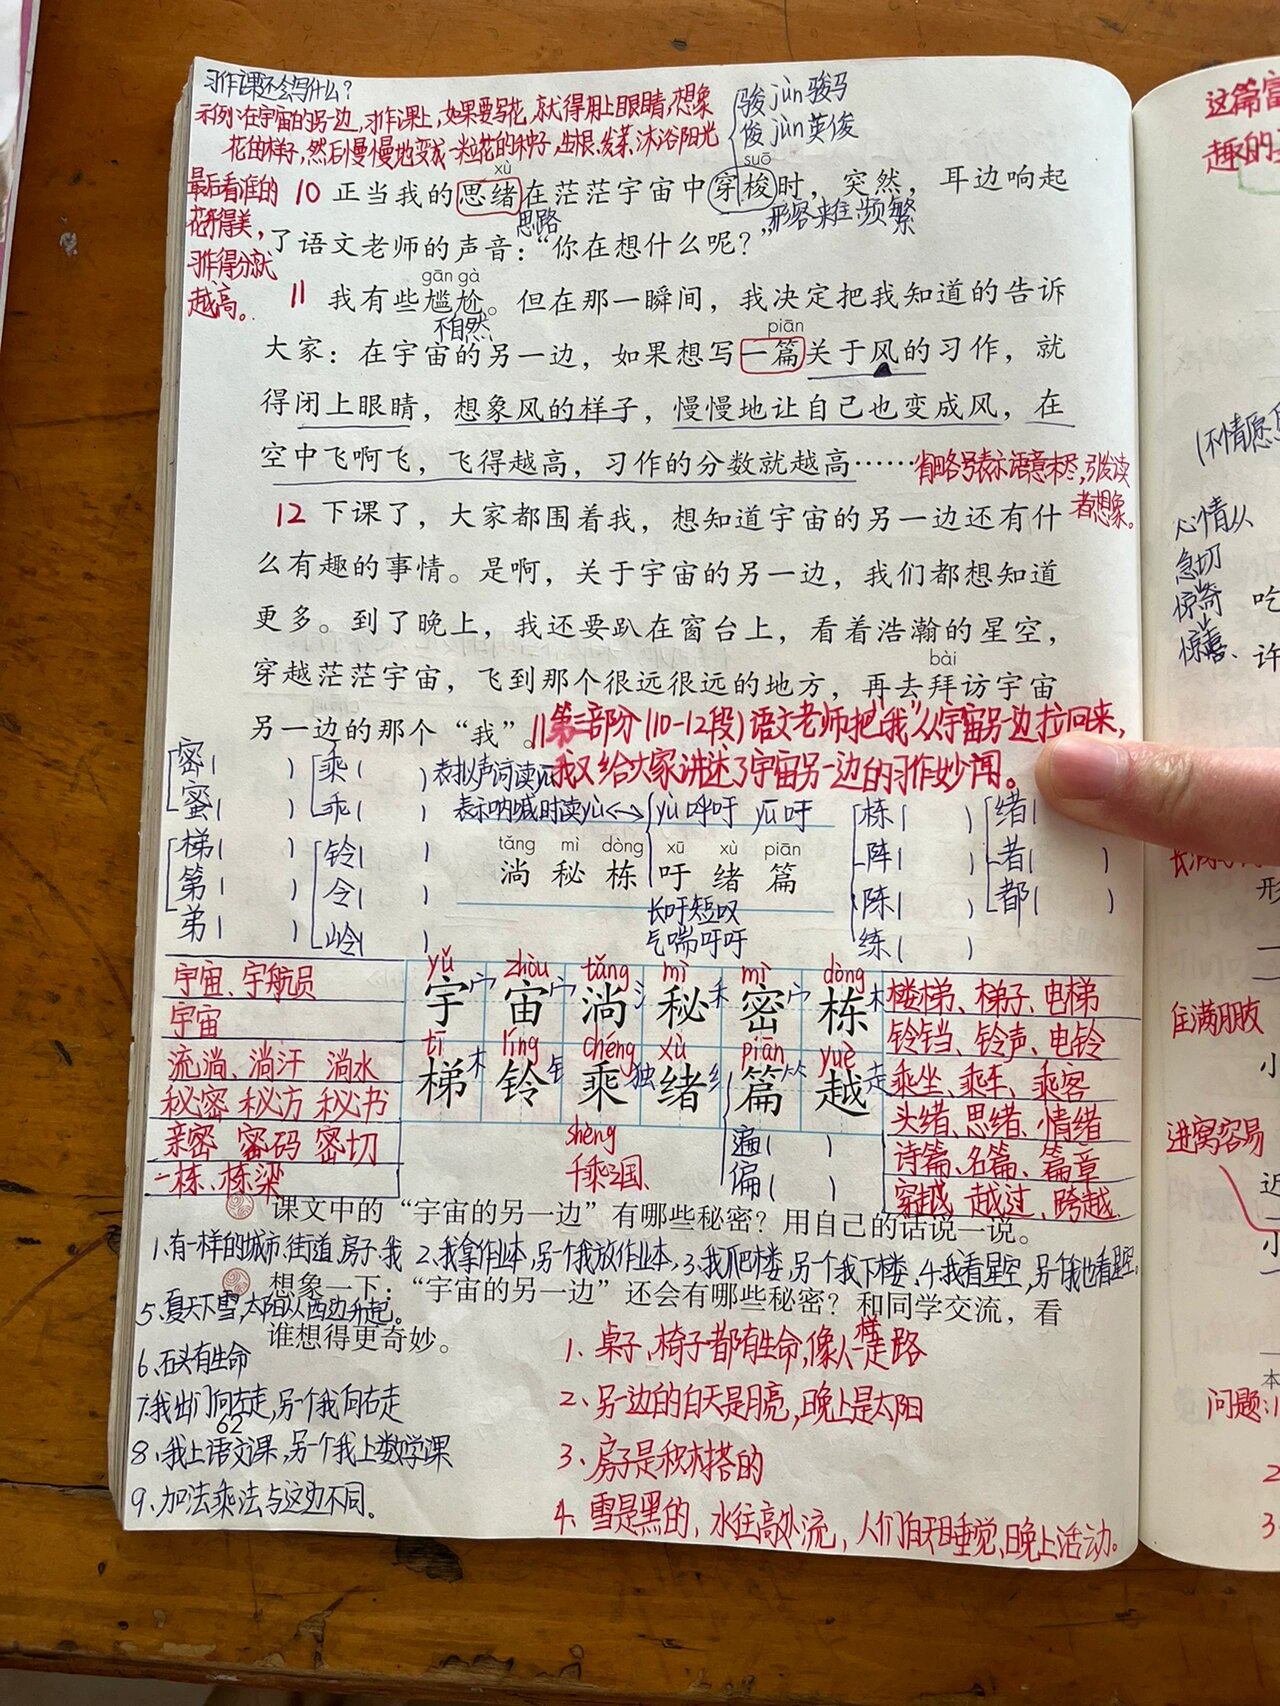 习作课还会写什么?
示例:在宇宙的另一边,习作课上,如果要写花,就得闭上眼睛,想象
花的样子,然后慢慢地变成一粒花的种子,生根、发芽、沐浴阳光
最后看谁的
花开得美,
习作得分就
越高。
骏 jùn 骏马
俊 jùn 英俊
xù suō
10 正当我的思绪在茫茫宇宙中穿梭时,突然,耳边响起
思路 形容来往频繁
了语文老师的声音:“你在想什么呢?”
gān gà
11 我有些尴尬。但在那一瞬间,我决定把我知道的告诉
不自然
piān
大家:在宇宙的另一边,如果想写一篇关于风的习作,就
得闭上眼睛,想象风的样子,慢慢地让自己也变成风,在
空中飞啊飞,飞得越高,习作的分数就越高……
省略号表示语意未尽,引发读
者想象。
12 下课了,大家都围着我,想知道宇宙的另一边还有什
么有趣的事情。是啊,关于宇宙的另一边,我们都想知道
更多。到了晚上,我还要趴在窗台上,看着浩瀚的星空,
bài
穿越茫茫宇宙,飞到那个很远很远的地方,再去拜访宇宙
另一边的那个“我”。
第三部分(10-12段)语文老师把“我”从宇宙另一边拉回来,
我又给大家讲述了宇宙另一边的习作妙闻。
密( ) 乘( ) 表拟声词读yū
蜜( ) 乖( ) 表示呐喊时读yù
yù 呼吁 yū 吁
梯( ) 铃( )
第( ) 令( )
弟( ) 岭( )
栋( ) 绪(
阵( ) 者( )
陈( ) 都( )
练( )
tǎng mì dòng xū xù piān
淌 秘 栋 吁 绪 篇
长吁短叹
气喘吁吁
yǔ zhòu tǎng mì mì dòng
宇 宀 宙 宀 淌 氵 秘 禾 密 宀 栋 木
tī líng chéng xù piān yuè
梯 木 铃 钅 乘 独 绪 纟 篇 ⺮ 越 走
shèng
千乘之国、
遍( )
偏( )
宇宙、宇航员
宇宙
流淌、淌汗 淌水
秘密 秘方 秘书
亲密 密码 密切
一栋、栋梁
楼梯、梯子、电梯
铃铛、铃声、电铃
乘坐、乘车、乘客
头绪、思绪、情绪
诗篇、名篇、篇章
穿越、越过、跨越
课文中的“宇宙的另一边”有哪些秘密?用自己的话说一说。
1、有一样的城市、街道、房子、我 2、我拿作业本,另一个我放作业本、3、我爬楼,另一个我下楼、4、我看星空,另一个我也看星空。
想象一下:“宇宙的另一边”还会有哪些秘密?和同学交流,看
5、夏天下雪,太阳从西边升起。
谁想得更奇妙。
6、石头有生命
7、我出门向左走,另一个我向右走
62
8、我上语文课,另一个我上数学课
9、加法乘法与这边不同。
1、桌子、椅子都有生命,像人一样走路
2、另一边的白天是月亮,晚上是太阳
3、房子是积木搭的
4、雪是黑的,水往高处流,人们白天睡觉、晚上活动。
这篇
趣的
(不情愿
心情从
急切
惊奇
惊喜、
吃
许
形
住满朋友
小
进窝容易
近
小
本
问题:1
2
3